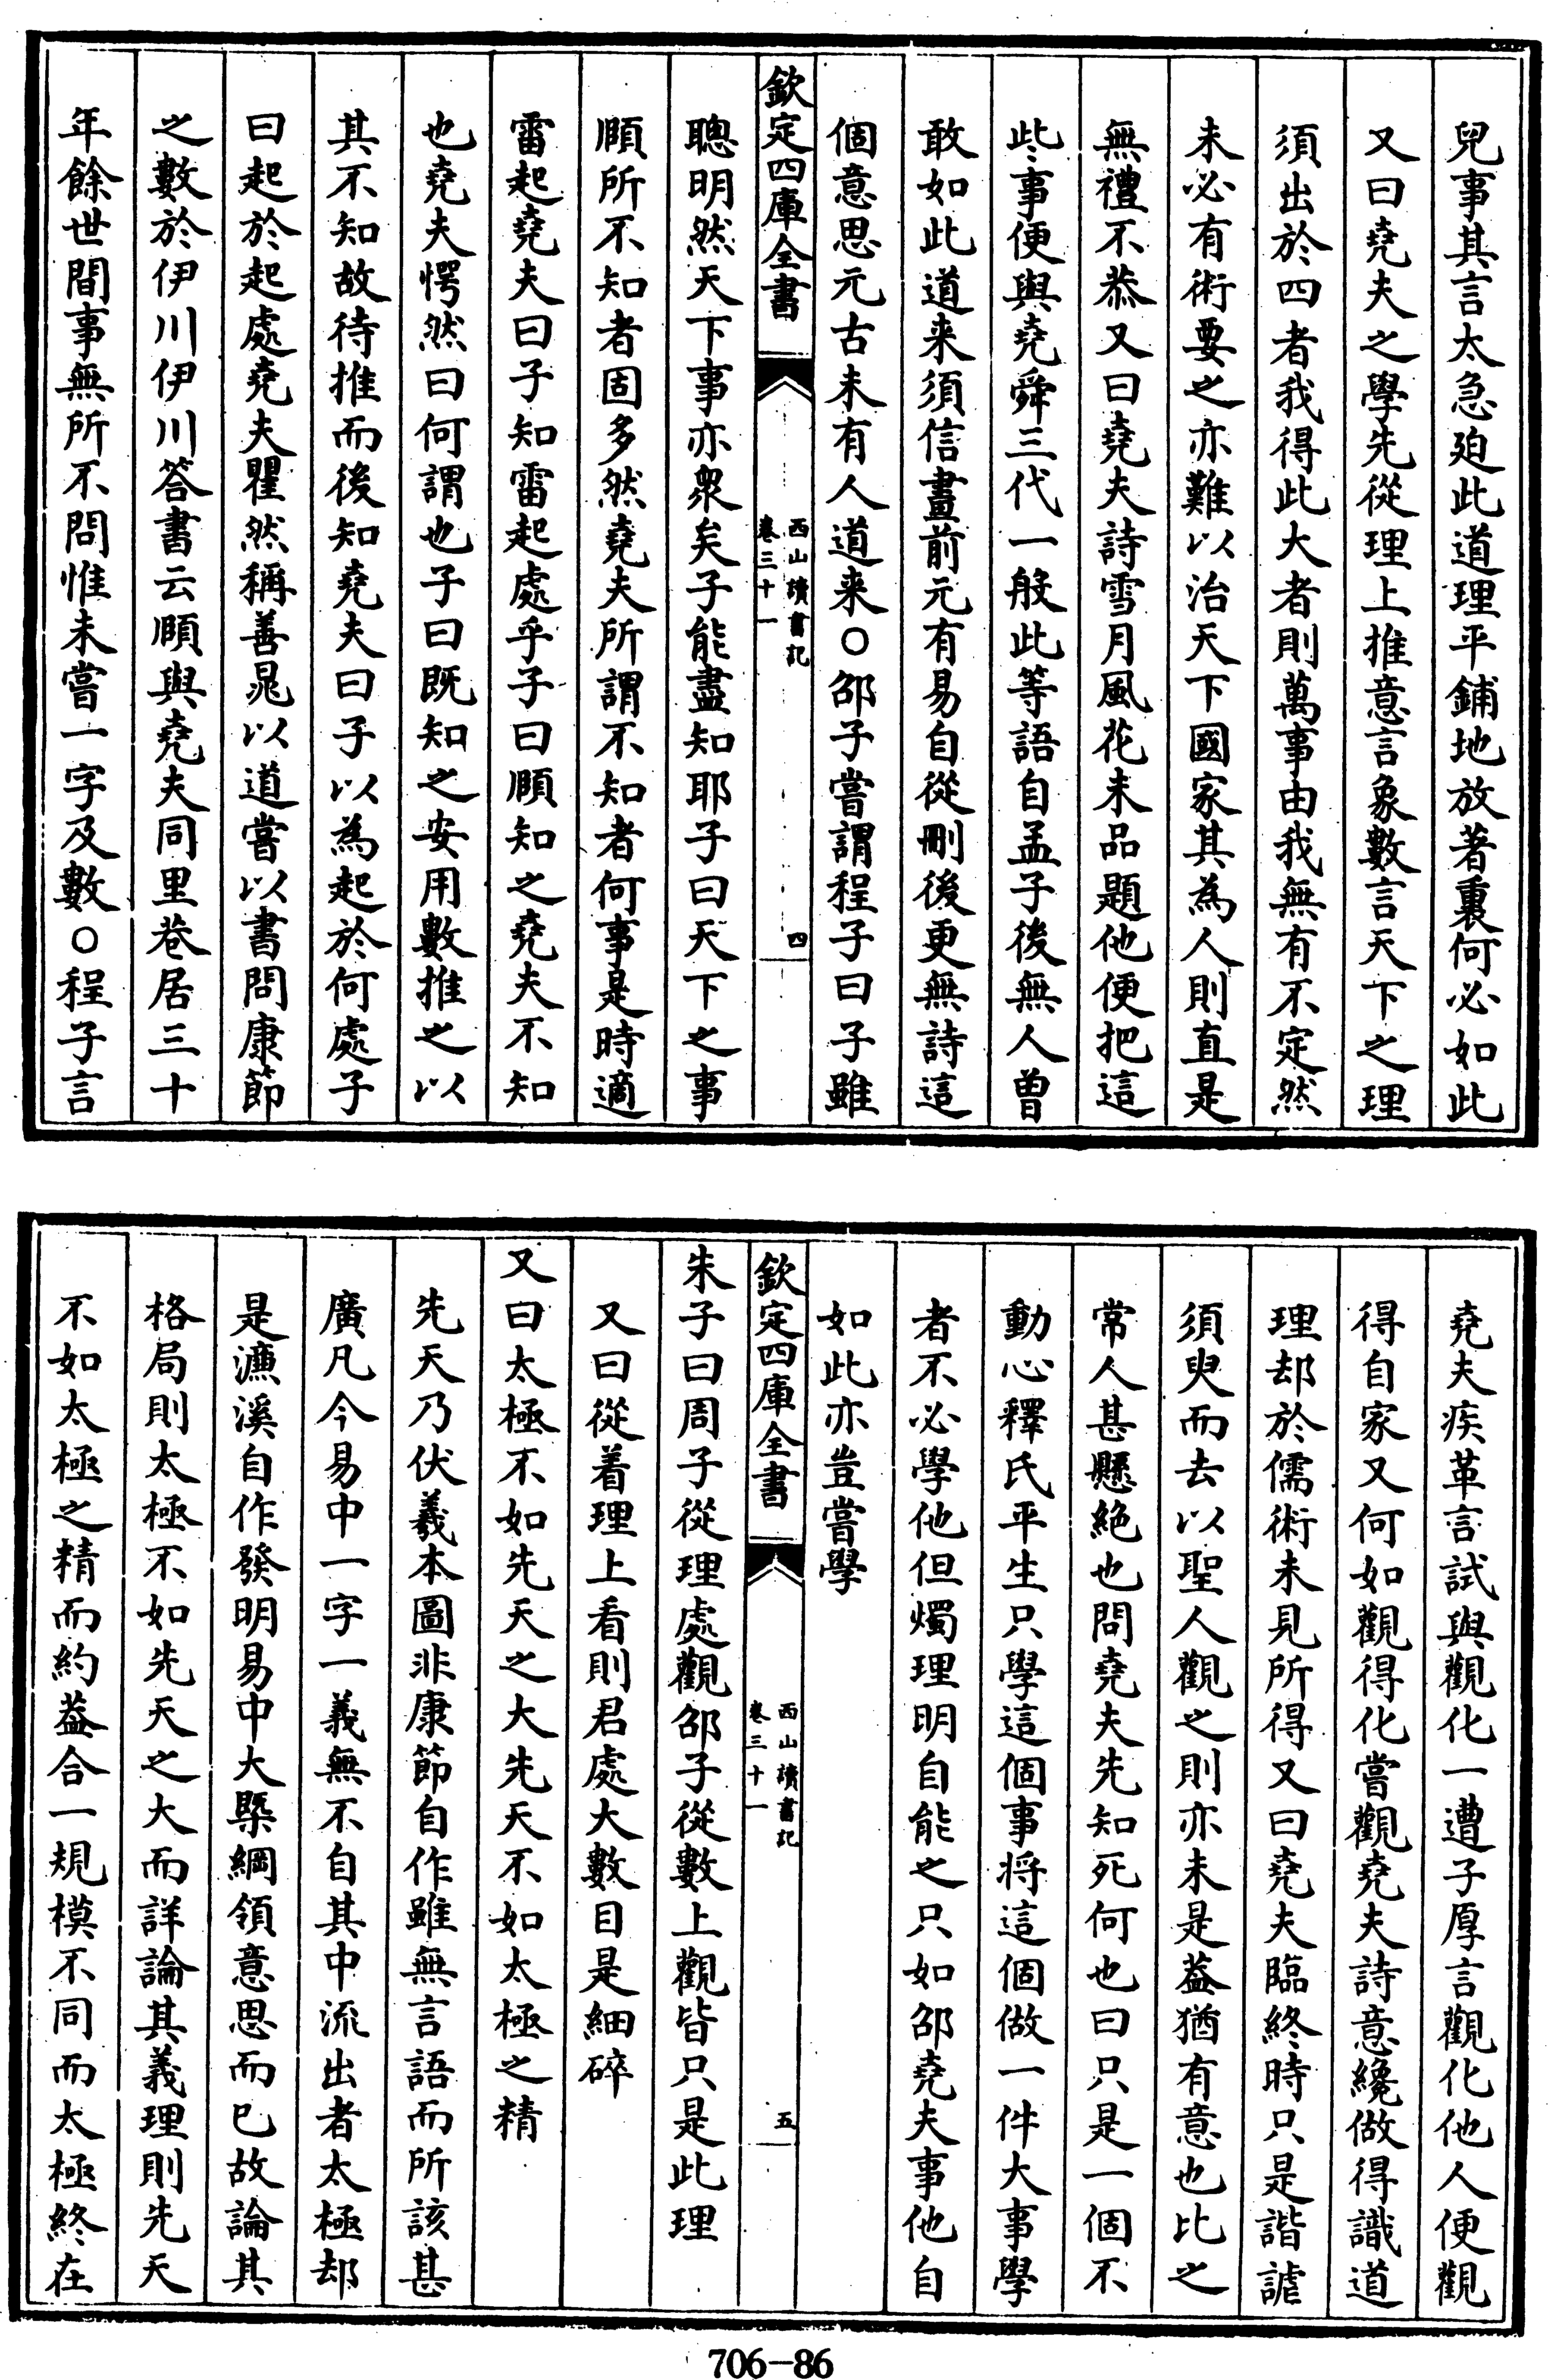 兒事其言太急廹此道理平鋪地放著裏何必如此
又曰堯夫之學先從理上推意言象數言天下之理
須出於四者我得此大者則萬事由我無有不定然
未必有術要之亦難以治天下國家其為人則直是
無禮不恭又曰堯夫詩雪月風花未品題他便把這
些事便與堯舜三代一般此等語自孟子後無人曾
敢如此道来須信畫前元有易自從刪後更無詩這
個意思元古未有人道来○邵子嘗謂程子曰子雖
欽定四庫全書
西山讀書記
卷三十一
四
聰明然天下事亦衆矣子能盡知耶子曰天下之事
頤所不知者固多然堯夫所謂不知者何事是時適
雷起堯夫曰子知雷起處乎子曰頤知之堯夫不知
也堯夫愕然曰何謂也子曰既知之安用數推之以
其不知故待推而後知堯夫曰子以為起於何處子
曰起於起處堯夫瞿然稱善晁以道嘗以書問康節
之數於伊川伊川答書云頤與堯夫同里巷居三十
年餘世間事無所不問惟未嘗一字及數○程子言
堯夫疾革言試與觀化一遭子厚言觀化他人便觀
得自家又何如觀得化嘗觀堯夫詩意纔做得識道
理却於儒術未見所得又曰堯夫臨終時只是諧謔
須臾而去以聖人觀之則亦未是葢猶有意也比之
常人甚懸絶也問堯夫先知死何也曰只是一個不
動心釋氏平生只學這個事将這個做一件大事學
者不必學他但燭理明自能之只如邵堯夫事他自
如此亦豈嘗學
欽定四庫全書
西山讀書記
卷三十一
五
朱子曰周子從理處觀邵子從數上觀皆只是此理
又曰從着理上看則君處大數目是細碎
又曰太極不如先天之大先天不如太極之精
先天乃伏羲本圖非康節自作雖無言語而所該甚
廣凡今易中一字一義無不自其中流出者太極却
是濂溪自作發明易中大槩綱領意思而已故論其
格局則太極不如先天之大而詳論其義理則先天
不如太極之精而約葢合一規模不同而太極終在
706-86